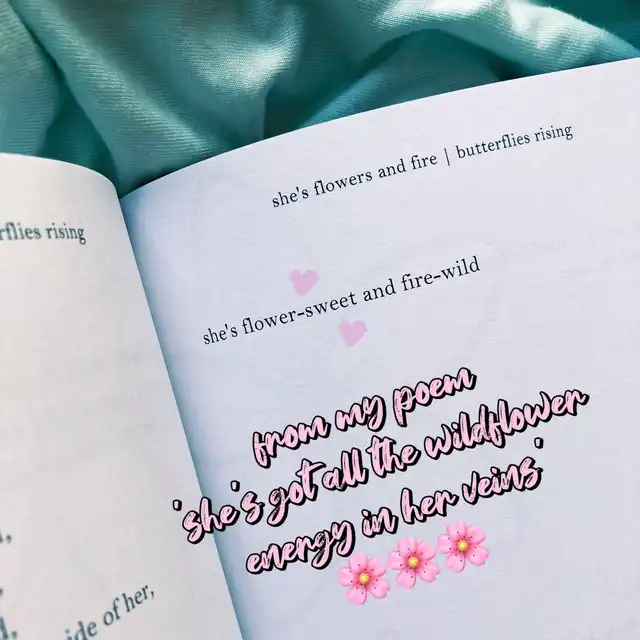 rflies rising
ide of her,
she's flowers and fire | butterflies rising
she's flower-sweet and fire-wild
from my poem
'she's got all the wildflower
energy in her veins'